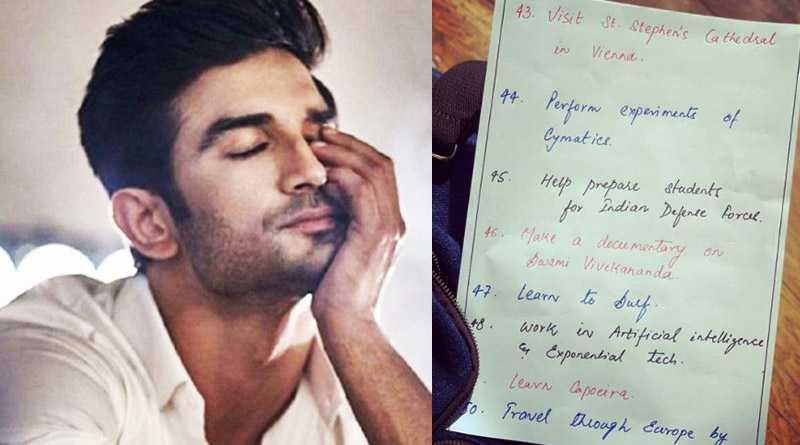 43. Visit St. Stephen's Cathedral
in Vienna.
44. Perform experiments of
Cymatics.
45. Help prepare students
for Indian Defense forces.
46. Make a documentary on
Swami Vivekananda.
47. Learn to Surf.
48. Work in Artificial intelligence
& Exponential tech.
. Learn Capoeira.
50. Travel through Europe by